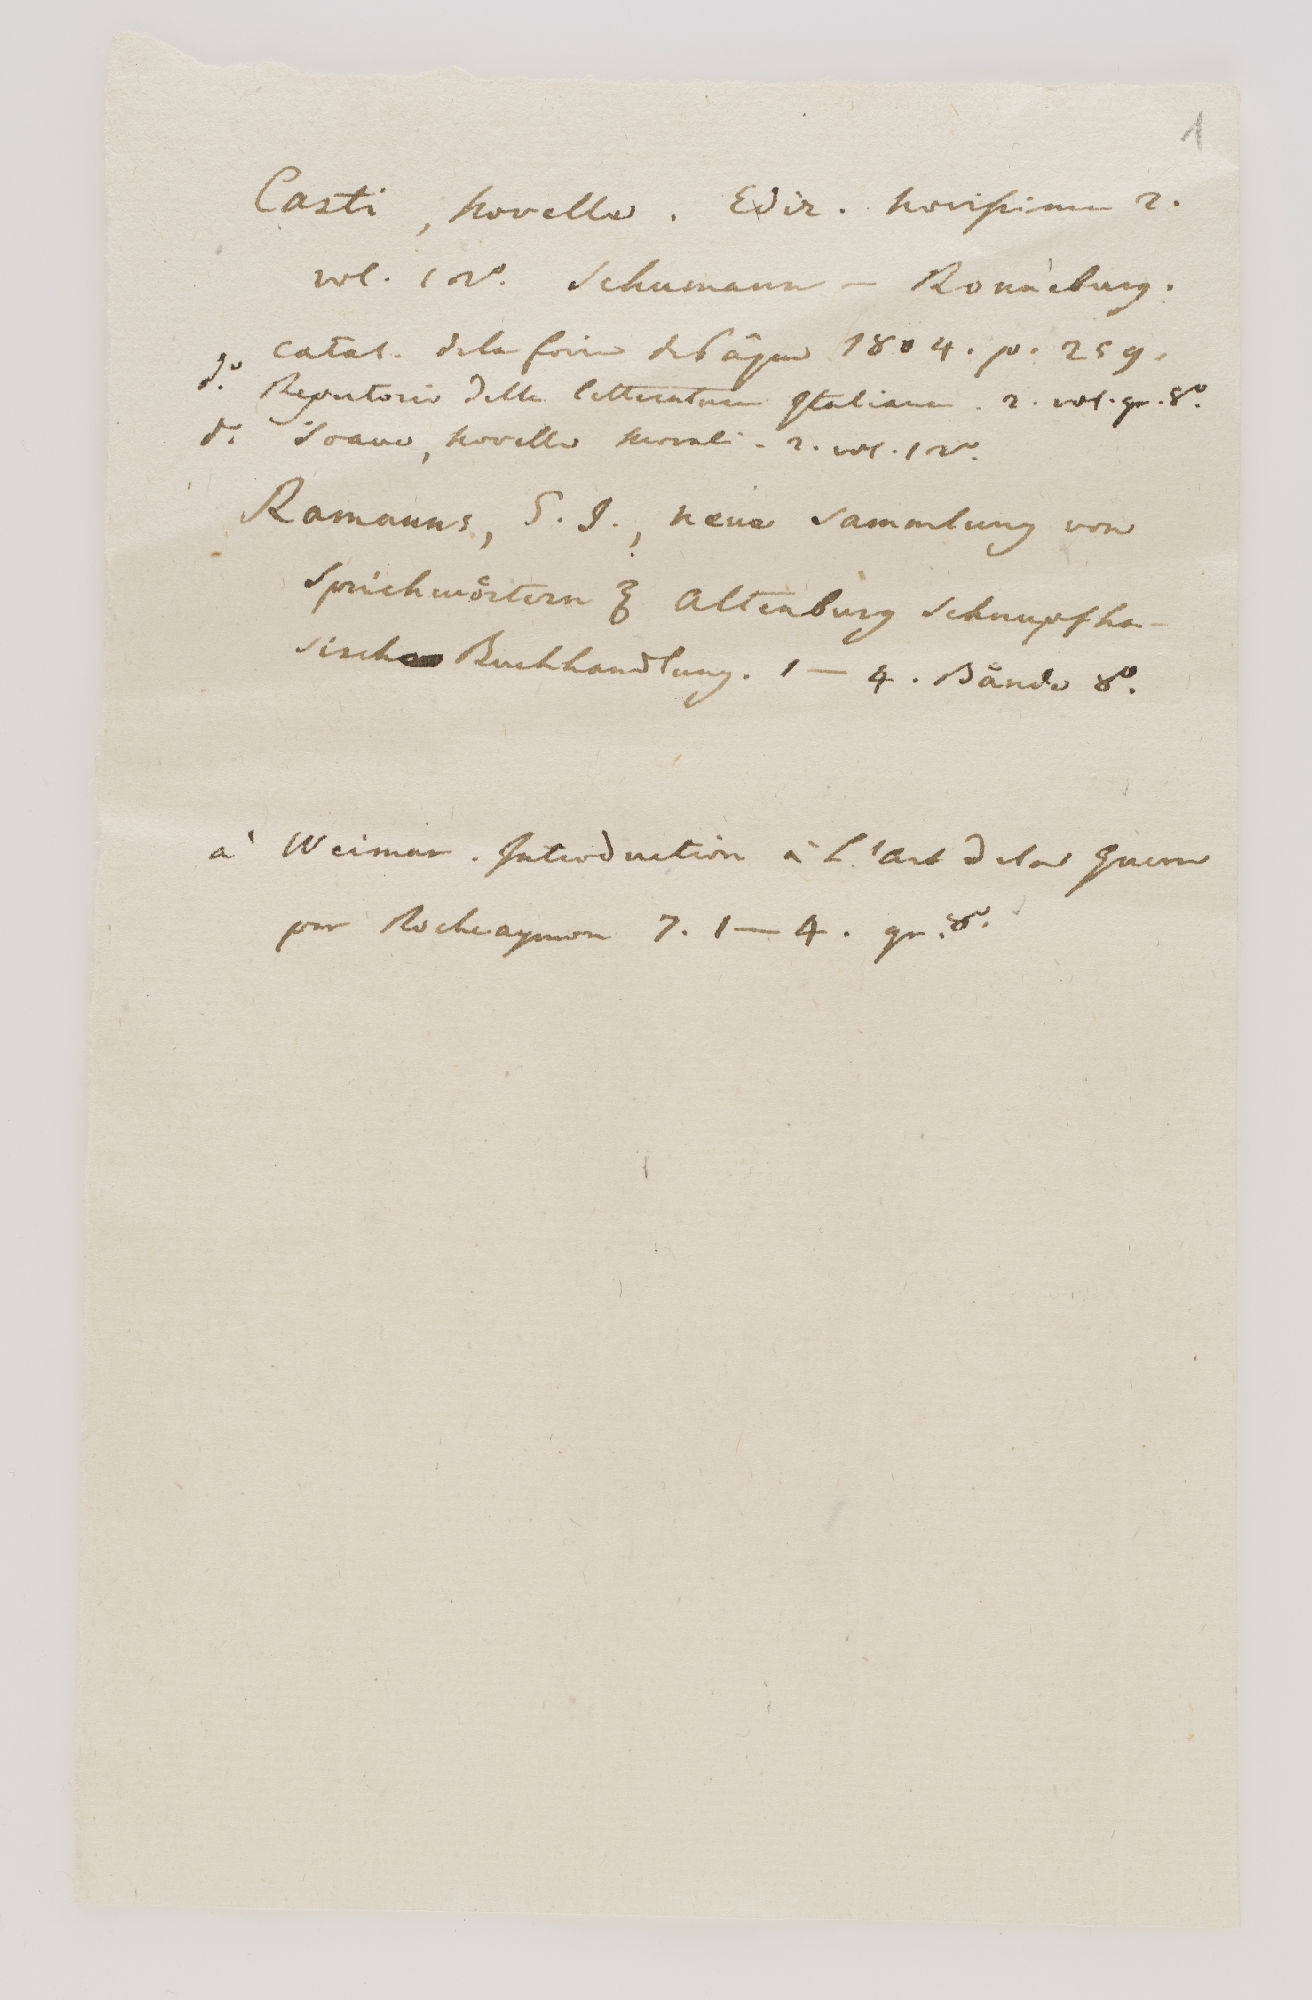 1
Casti, Novelle. Ediz. novissima 2.
vol. 12º. Schumann – Ronneburg.
catal. de la foire de Pâque 1804. p. 259.
dº. Repertorio della letteratura Italiana. 2. vol. gr. 8º.
dº. Soave, novelle morali. 2. vol. 12º.
Ramanns, S. J., neue Sammlung von
Sprichwörtern & Altenburg Schnupfha-
sische Buchhandlung. 1 – 4. Bände 8º.
à Weimar. Introduction à L'art de la Guerre
par Rocheaymon 7. 1 – 4. gr. 8º.